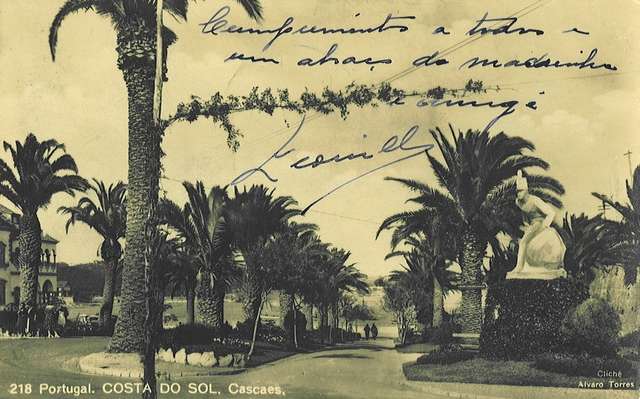 Cumprimentos a todos e
um abraço da madrinha
e amiga
218 Portugal. COSTA DO SOL. Cascaes.
Cliché
Alvaro Torres